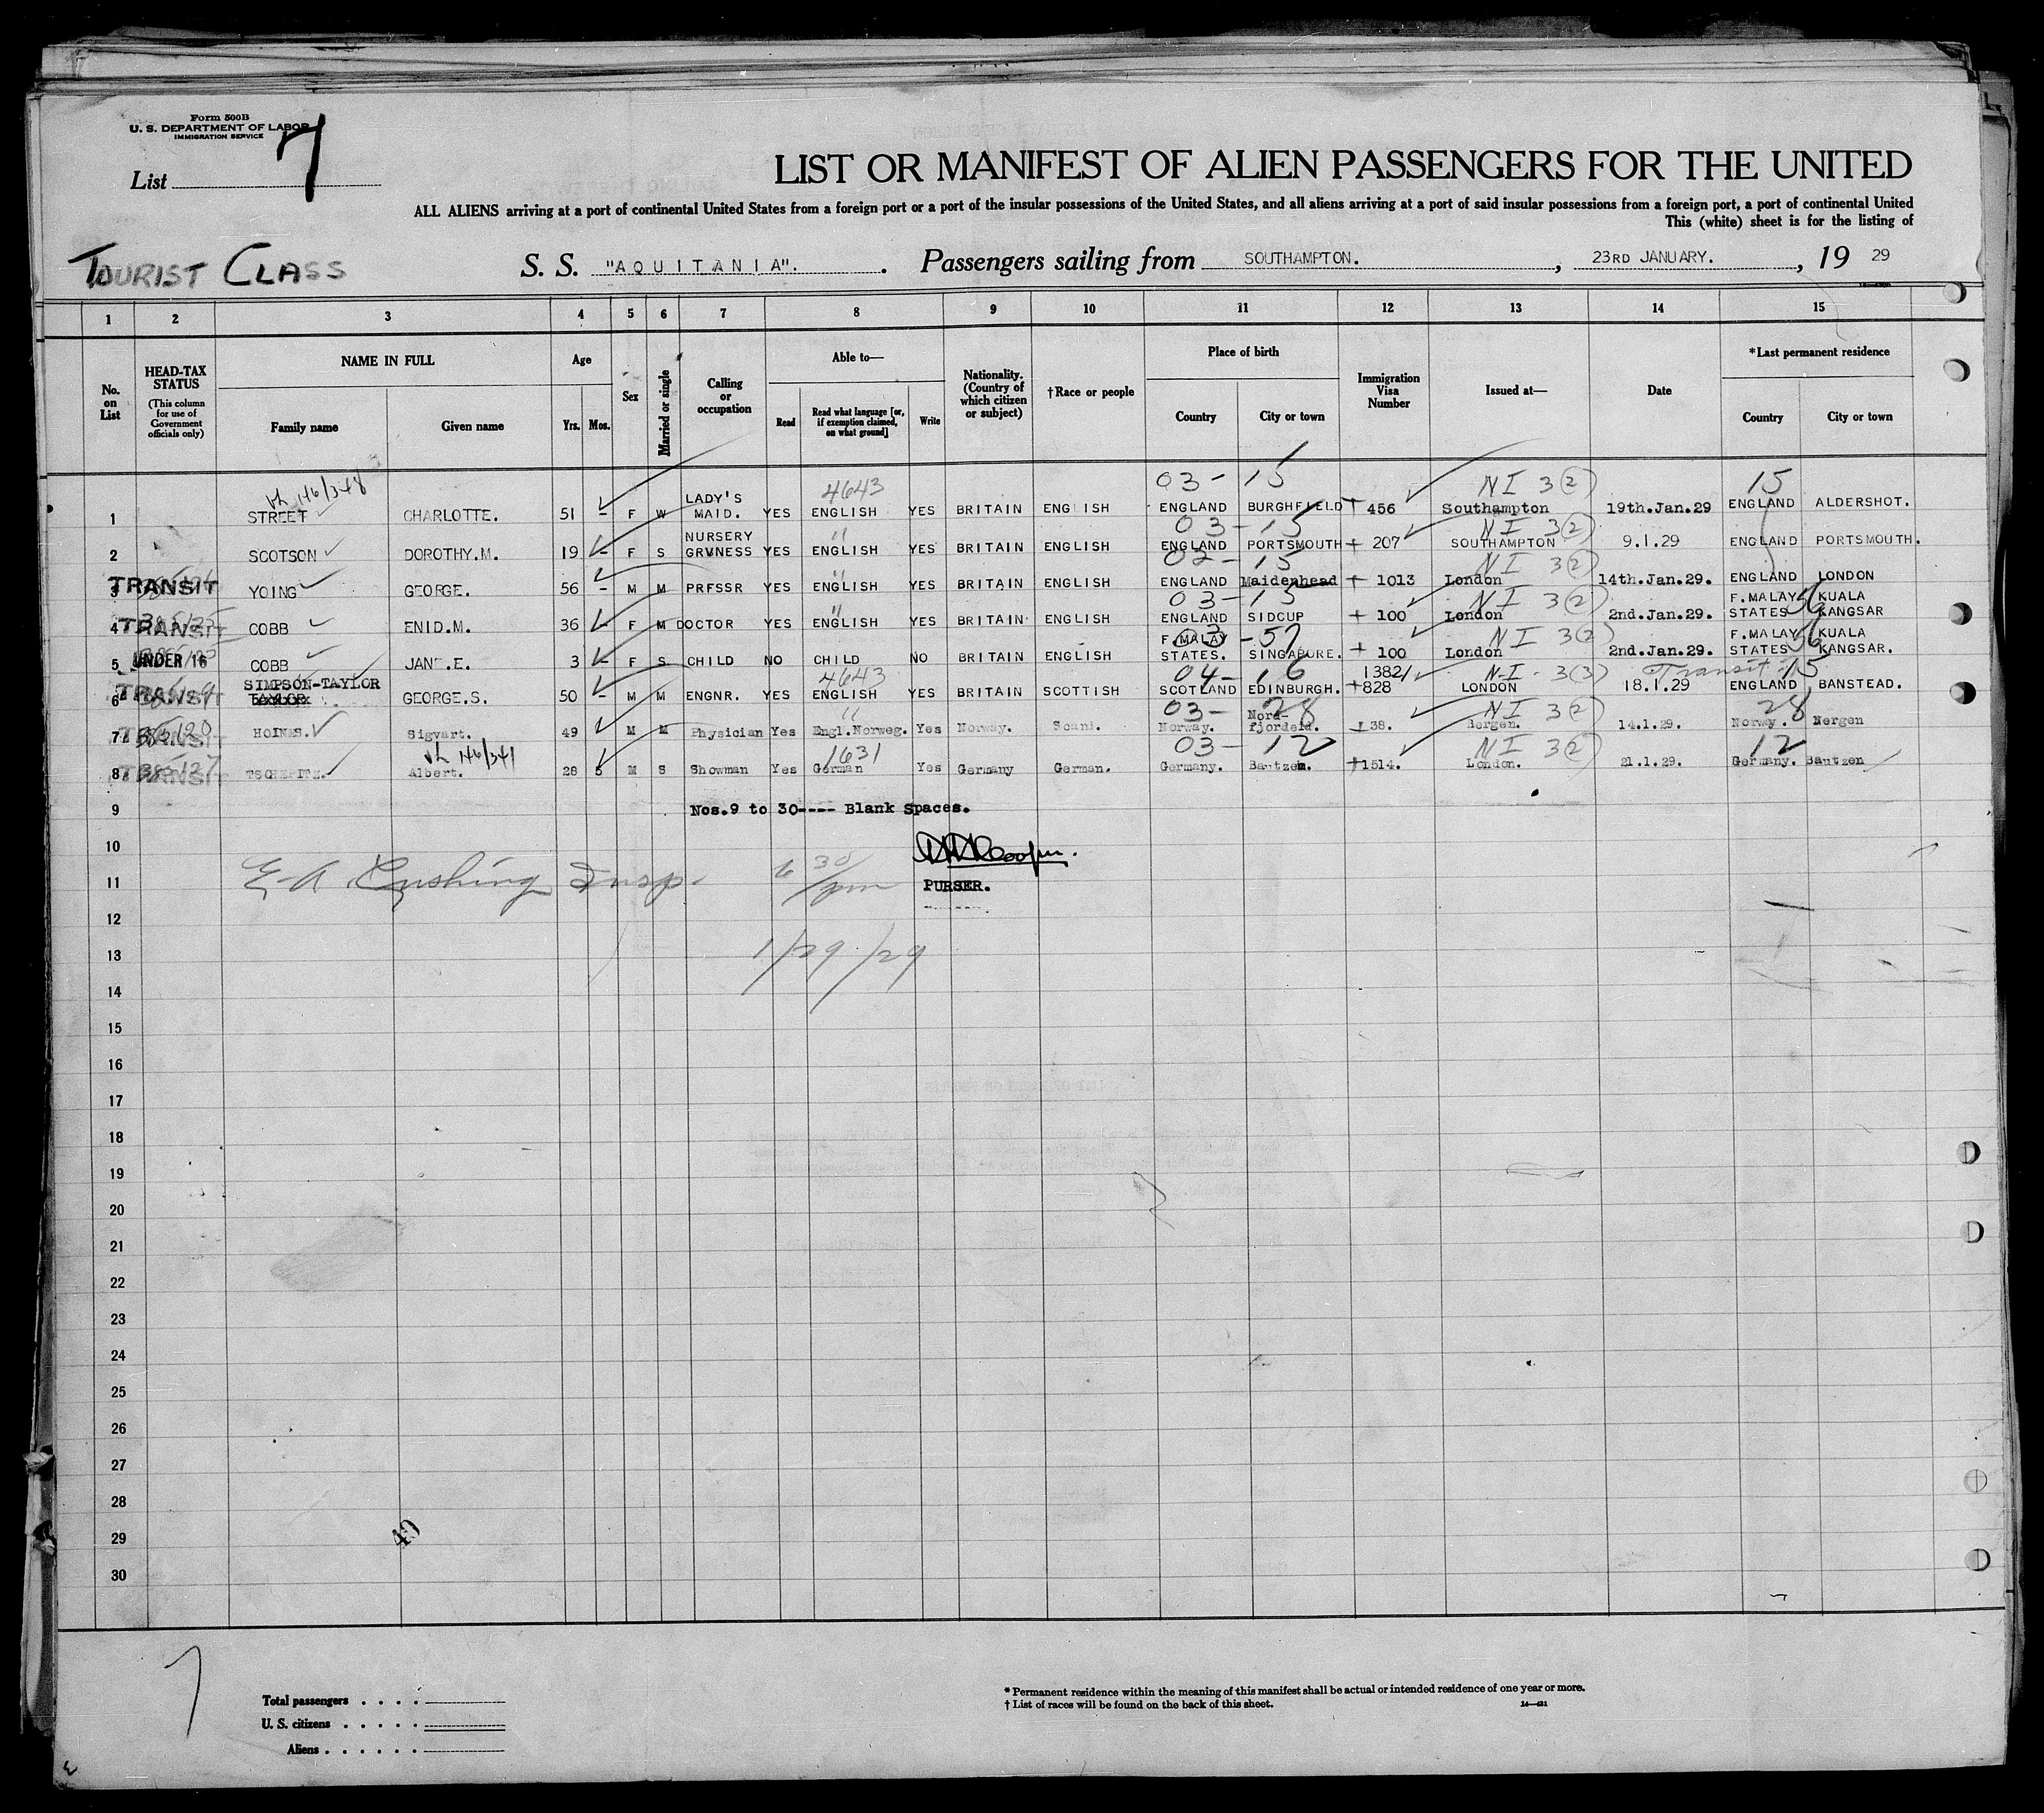 Form 500B
U. S. DEPARTMENT OF LABOR
IMMIGRATION SERVICE
List 7
LIST OR MANIFEST OF ALIEN PASSENGERS FOR THE UNITED
ALL ALIENS arriving at a port of continental United States from a foreign port or a port of the insular possessions of the United States, and all aliens arriving at a port of said insular possessions from a foreign port, a port of continental United
This (white) sheet is for the listing of
TOURIST CLASS
S. S. "AQUITANIA". Passengers sailing from SOUTHAMPTON. , 23RD JANUARY. , 19 29
1 2 3 4 5 6 7 8 9 10 11 12 13 14 15
No. on List
HEAD-TAX STATUS (This column for use of Government officials only)
NAME IN FULL
Family name Given name
Age
Yrs. Mos.
Sex
Married or single
Calling or occupation
Able to—
Read Read what language [or, if exemption claimed, on what ground] Write
Nationality. (Country of which citizen or subject)
†Race or people
Place of birth
Country City or town
Immigration Visa Number
Issued at—
Date
*Last permanent residence
Country City or town
146/348 4643 03-15 NI 3(2) 15
1 STREET CHARLOTTE. 51 - F W LADY'S MAID. YES ENGLISH YES BRITAIN ENGLISH ENGLAND BURGHFIELD 456 Southampton 19th.Jan.29 ENGLAND ALDERSHOT.
" 03-15 NI 3(2)
2 SCOTSON DOROTHY.M. 19 - F S NURSERY GRVNESS YES ENGLISH YES BRITAIN ENGLISH ENGLAND PORTSMOUTH 207 SOUTHAMPTON 9.1.29 ENGLAND PORTSMOUTH.
" 02-15 NI 3(2)
3 TRANSIT YOING GEORGE. 56 - M M PRFSSR YES ENGLISH YES BRITAIN ENGLISH ENGLAND Maidenhead 1013 London 14th.Jan.29. ENGLAND LONDON
" 03-15 NI 3(2) 56
4 TRANSIT COBB ENID.M. 36 - F M DOCTOR YES ENGLISH YES BRITAIN ENGLISH ENGLAND SIDCUP 100 London 2nd.Jan.29. F.MALAY STATES KUALA KANGSAR
03-57 NI 3(2) 56
5 UNDER 16 COBB JANE.E. 3 - F S CHILD NO CHILD NO BRITAIN ENGLISH F.MALAY STATES. SINGAPORE. 100 London 2nd.Jan.29. F.MALAY STATES KUALA KANGSAR.
4643 04-16 13821 NI 3(3) Transit 15
6 TRANSIT SIMPSON-TAYLOR GEORGE.S. 50 - M M ENGNR. YES ENGLISH YES BRITAIN SCOTTISH SCOTLAND EDINBURGH. 828 LONDON 18.1.29 ENGLAND BANSTEAD.
" 03-28 NI 3(2) 28
7 TRANSIT HOINES. Sigvart. 49 M M Physician Yes Engl.Norweg. Yes Norway. Scani. Norway. Nord-fjordeid. 38. Bergen. 14.1.29. Norway. Nergen
146/341 1631 03-12 NI 3(2) 12
8 TRANSIT TSCHEPITZ. Albert. 28 5 M S Showman Yes German Yes Germany German. Germany. Bautzen. 1514. London. 21.1.29. Germany. Bautzen
9 Nos.9 to 30---- Blank Spaces.
10
11 E. A. Cushing Insp. 6 30/pm PURSER.
12
13 1/29/29
14
15
16
17
18
19
20
21
22
23
24
25
26
27
28
29 49
30
7
Total passengers
U. S. citizens
Aliens
* Permanent residence within the meaning of this manifest shall be actual or intended residence of one year or more.
† List of races will be found on the back of this sheet.